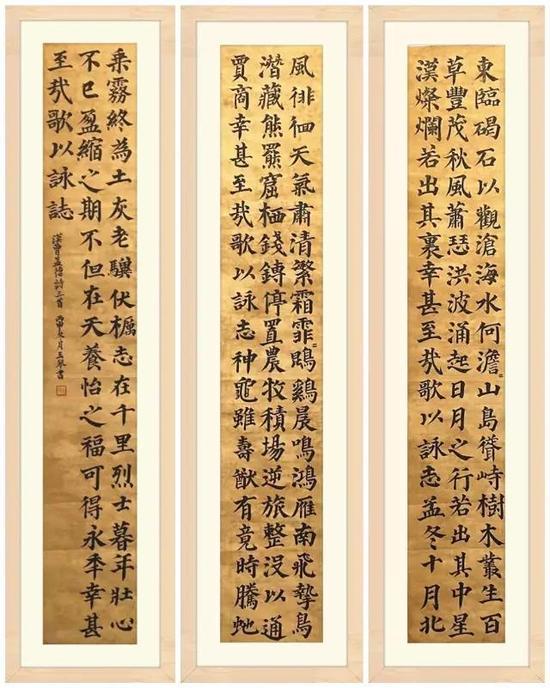 東臨碣石以觀滄海水何澹〻山島聳峙樹木叢生百
草豐茂秋風蕭瑟洪波涌起日月之行若出其中星
漢燦爛若出其裏幸甚至哉歌以詠志孟冬十月北
風徘徊天氣肅清繁霜霏〻鵾鷄晨鳴鴻雁南飛摯鳥
潛藏熊羆窟栖錢鎛停置農收積場逆旅整設以通
賈商幸甚至哉歌以詠志神龜雖壽猷有竟時騰虵
乘霧終為土灰老驥伏櫪志在千里烈士暮年壯心
不已盈縮之期不但在天養怡之福可得永年幸甚
至哉歌以詠誌
漢曹孟德詩三首 丙申冬月王書